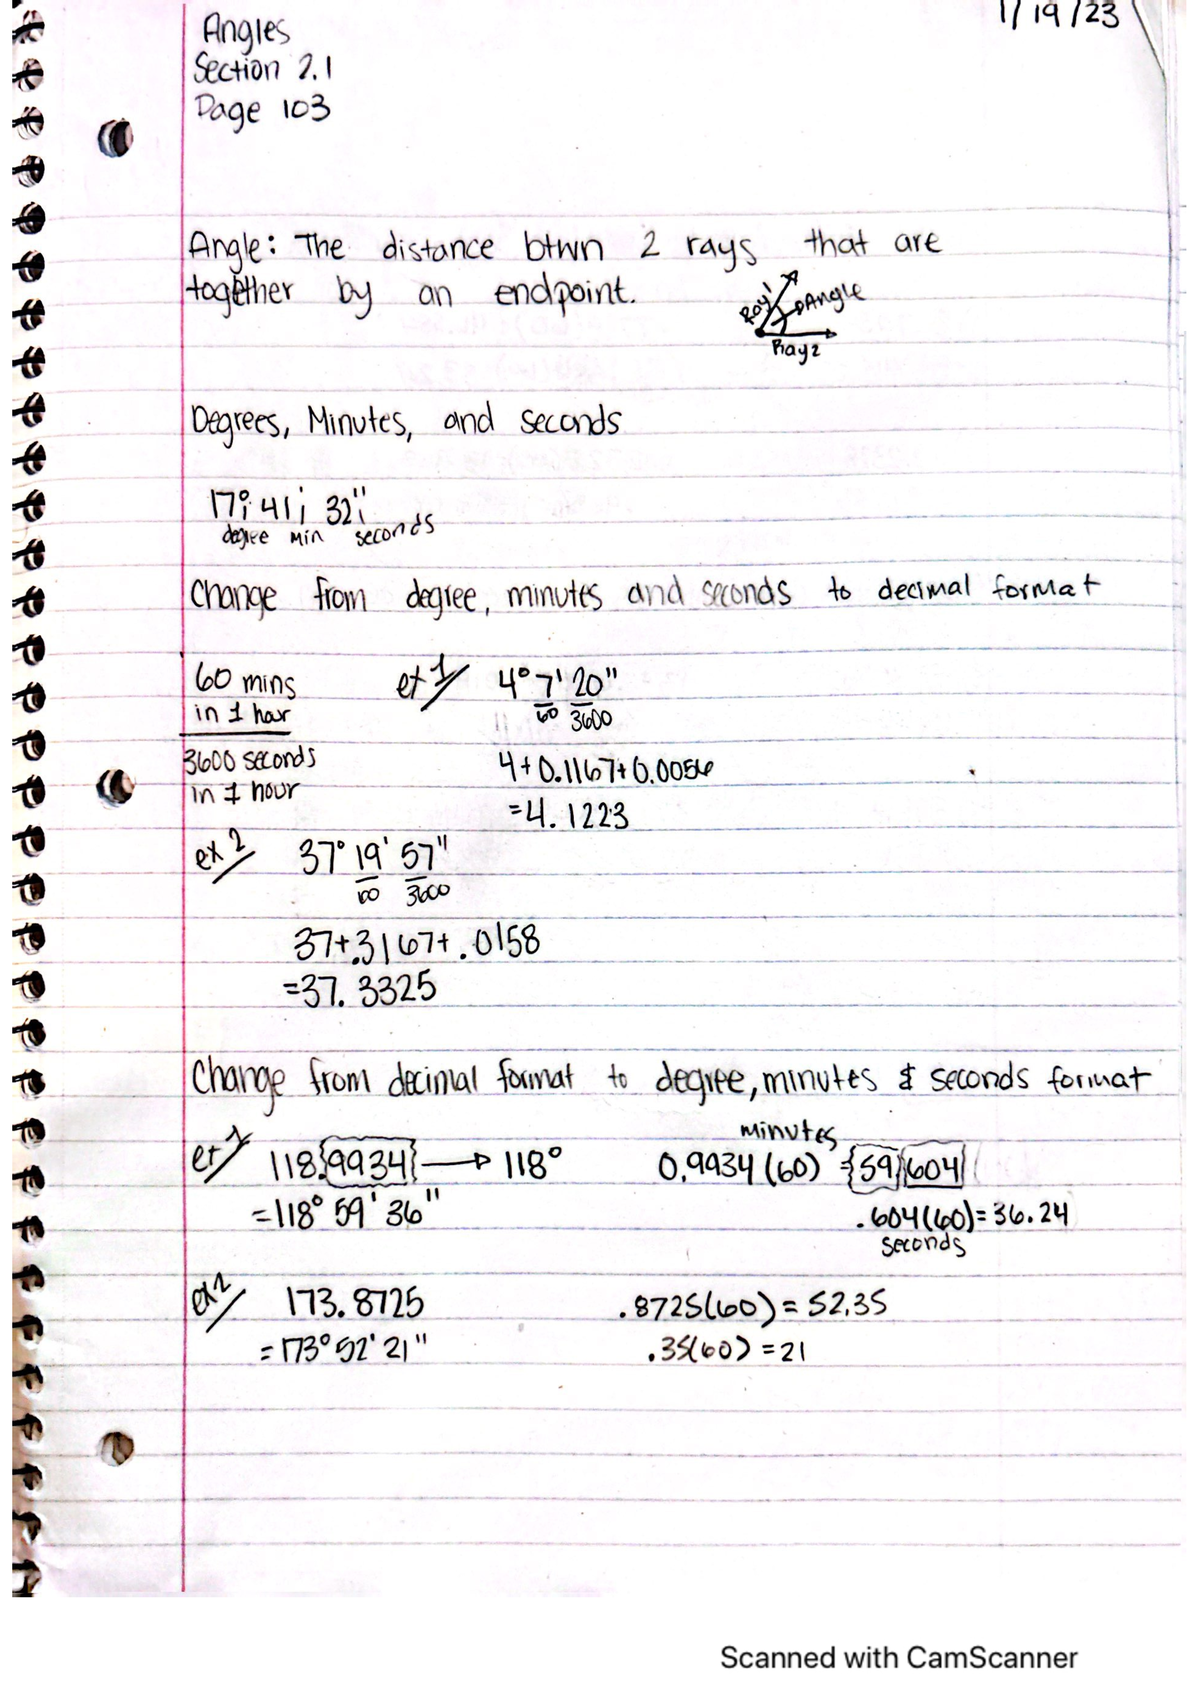 1/19/23
Angles
Section 2.1
Page 103
Angle: The distance btwn 2 rays that are
together by an endpoint.
Ray 1
Angle
Ray 2
Degrees, Minutes, and seconds
17° 41' 32"
degree min seconds
Change from degree, minutes and seconds to decimal format
60 mins
in 1 hour
3600 seconds
in 1 hour
ex 1/ 4° 7' 20"
60 3600
4+0.1167+0.0056
=4.1223
ex 2/ 37° 19' 57"
60 3600
37+.3167+.0158
=37.3325
Change from decimal format to degree, minutes & seconds format
minutes
ex 1/ 118.9934 → 118° 0.9934(60) = 59.604
=118° 59' 36" .604(60)=36.24
seconds
ex 2/ 173.8725 .8725(60) = 52.35
=173° 52' 21" .35(60) = 21
Scanned with CamScanner